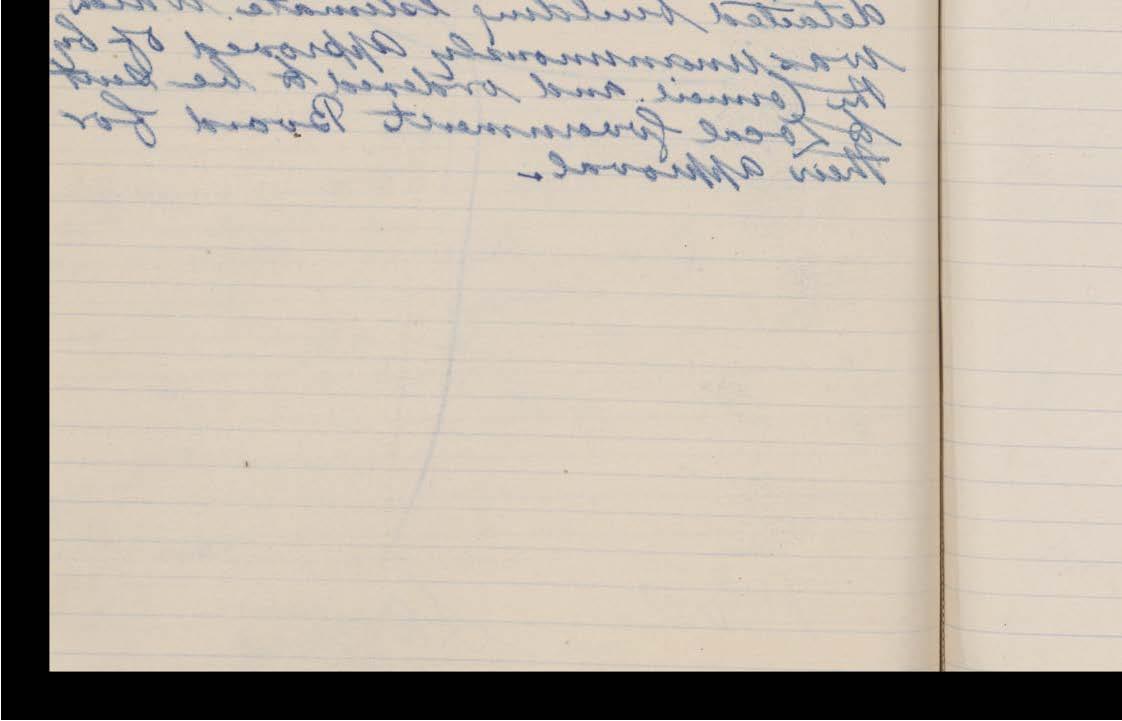 detailed building Estimate. Which
was Unanimously Approved of by
the Council. and ordered to be sent
to Local Government Board for
their approval.